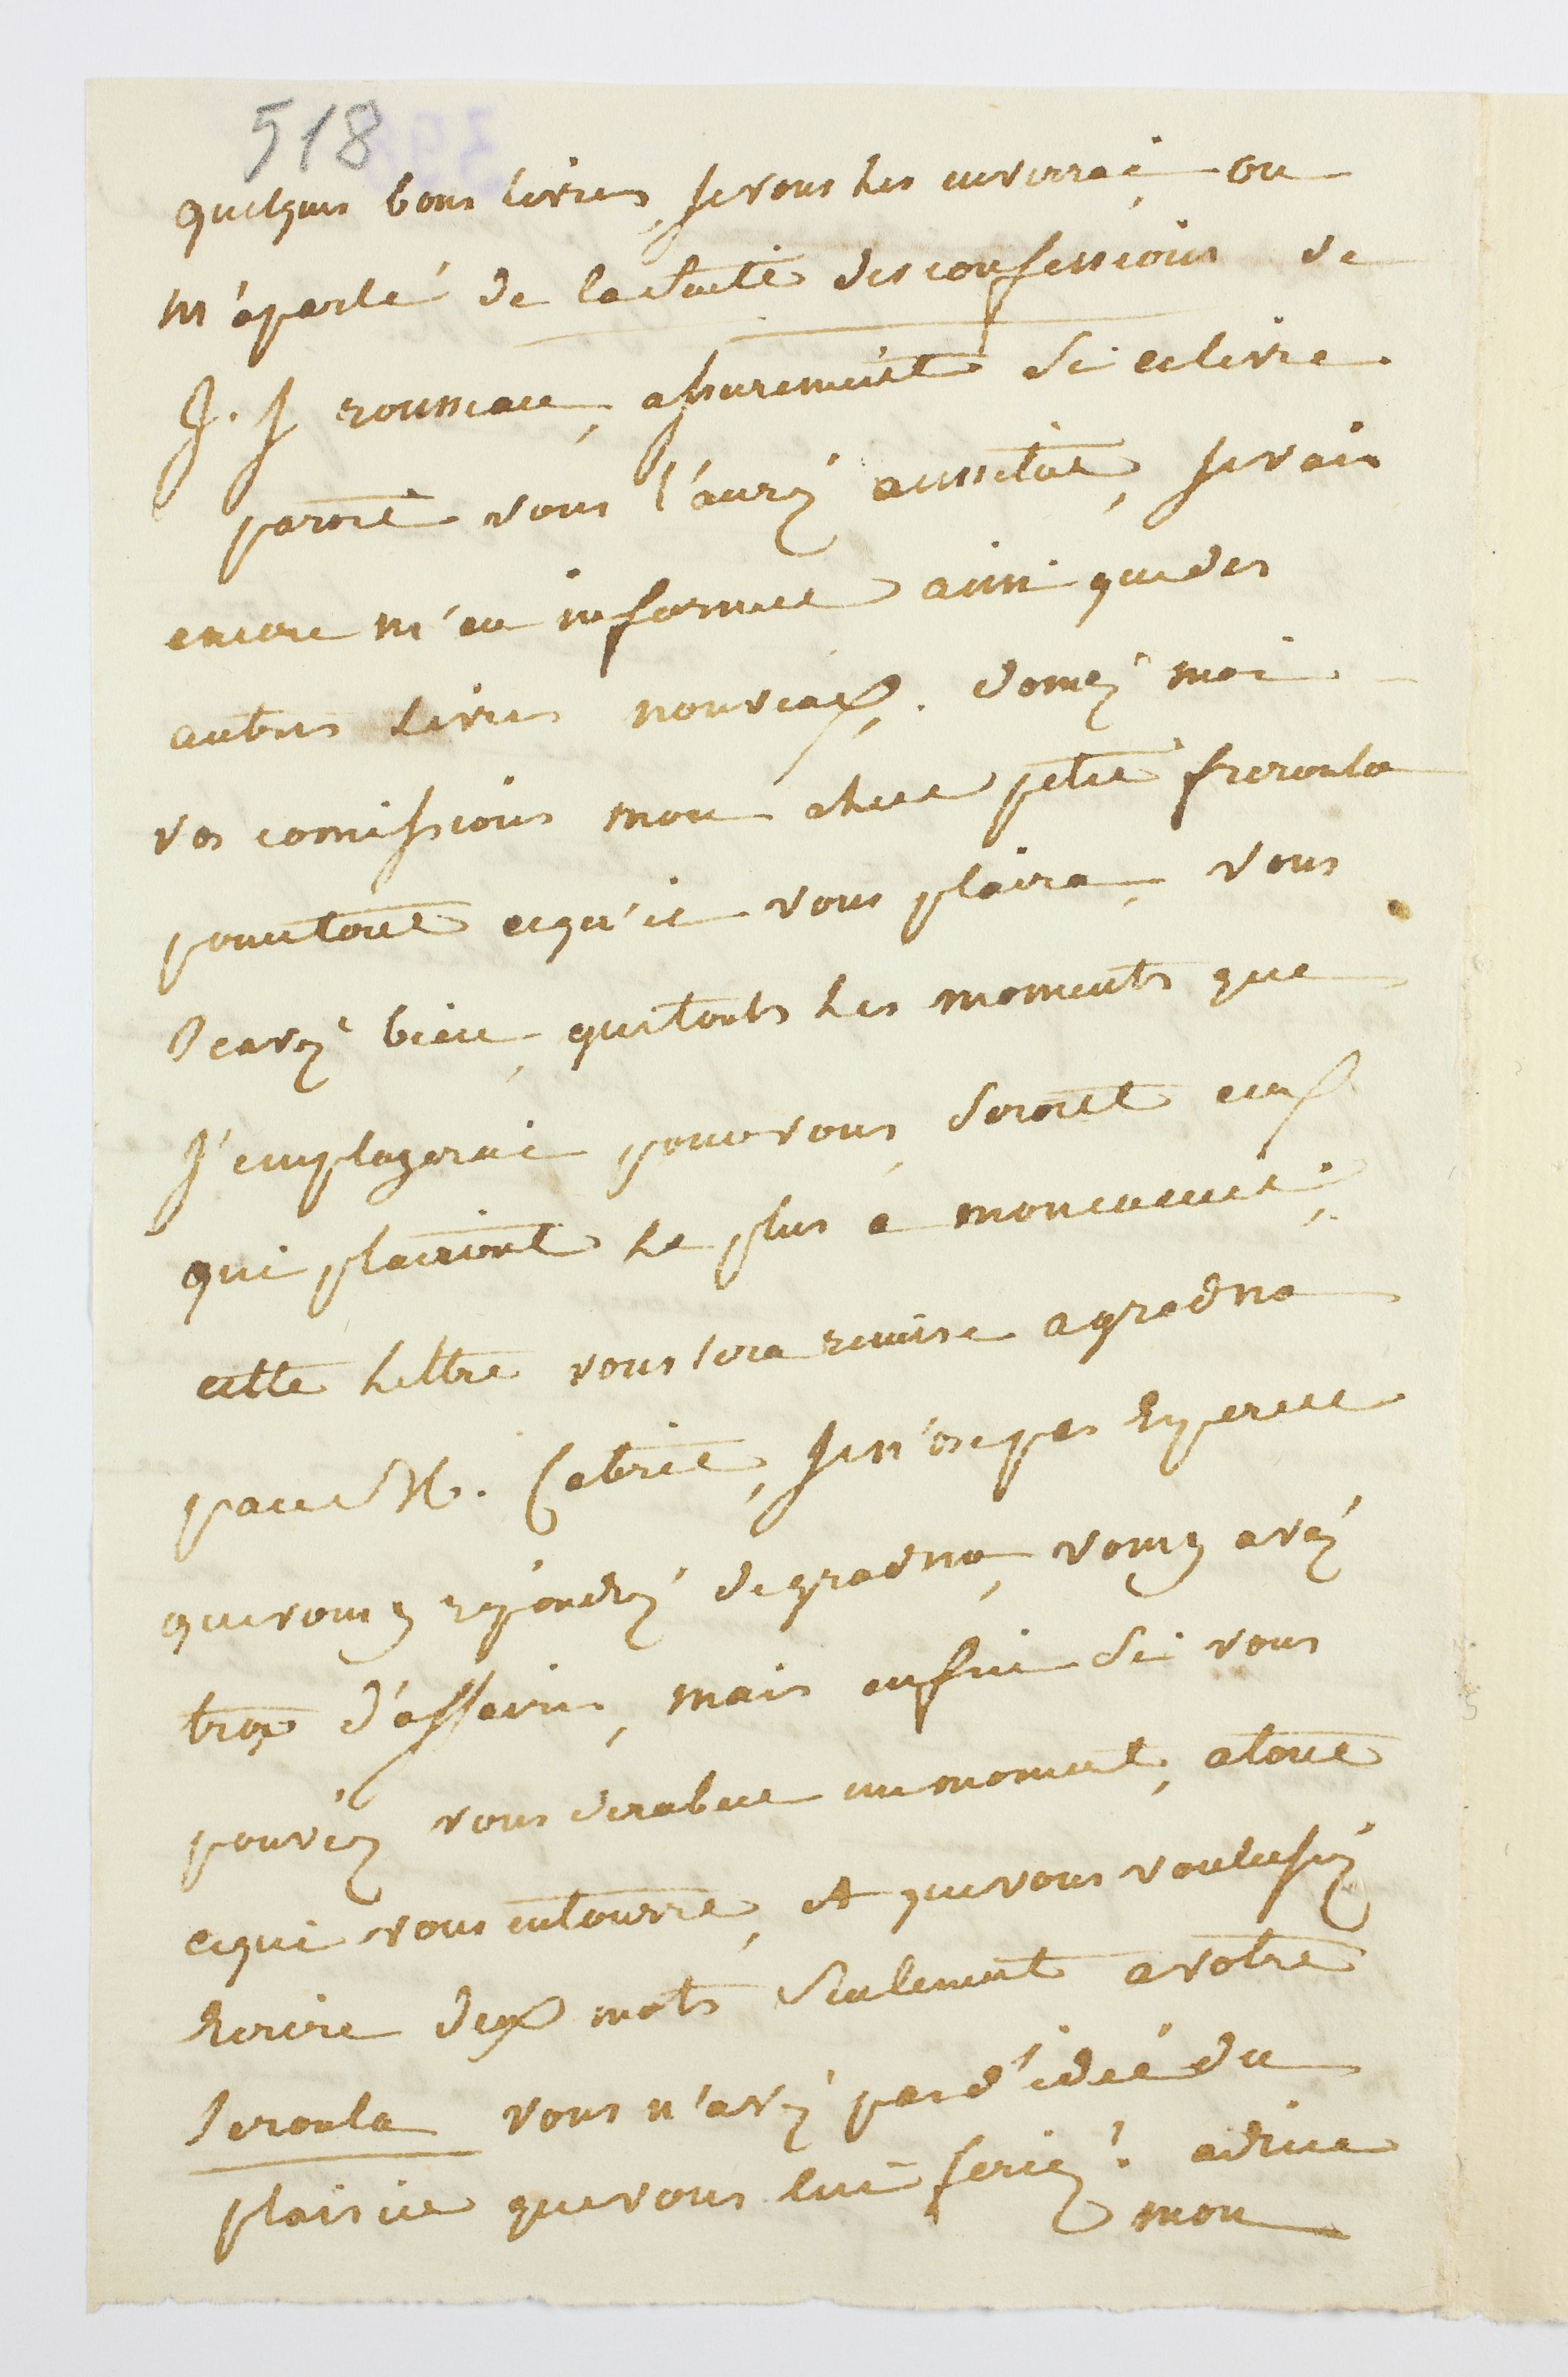 518
quelques bons livres, je vous les enverrai, on
m'a parlé de la suite des confessions de
J. J rousseau, assurement si ce livre
paroit vous l'auré aussitot, je vais
encore m'en informer ainsi que des
autres livres nouveaux. donné moi
vos comissions mon cher petit freroula
pour tout ce qu'il vous plaira, vous
scavé bien, que touts les moments que
j'employerai pour vous, seront ceux
qui plairont le plus a mon amitié,
cette lettre vous sera remise a grodno
par M. Cabrit, je n'ose pas esperer
que vous y répondré de grodno, vous y avé
trop d'affaires, mais enfin si vous
pouviez vous derober un moment, a tout
ce qui vous entourre, et que vous voulussiez
ecrire deux mots seulement a votre
seroula vous n'avé pas d'ideé du
plaisir que vous lui feriez! adieu
mon